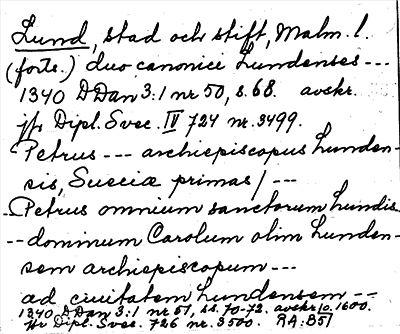 Lund, stad och stift, Malm. l.
(forts.) duo canonici Lundenses ---
1340 DDan 3:1 nr 50, s. 68. avskr.
jfr Dipl. Svec. IV 724 nr. 3499.
Petrus --- archiepiscopus Lunden-
sis, Sueciæ primas / ---
Petrus omnium sanctorum Lundis
-- dominum Carolum olim Lunden-
sem archiepiscopum ---
ad ciuitatem Lundensem --
1340 DDan 3:1 nr 51, ss. 70-72. avskr. 1600.
Jfr Dipl. Svec. 726 nr. 3500. RA: B51